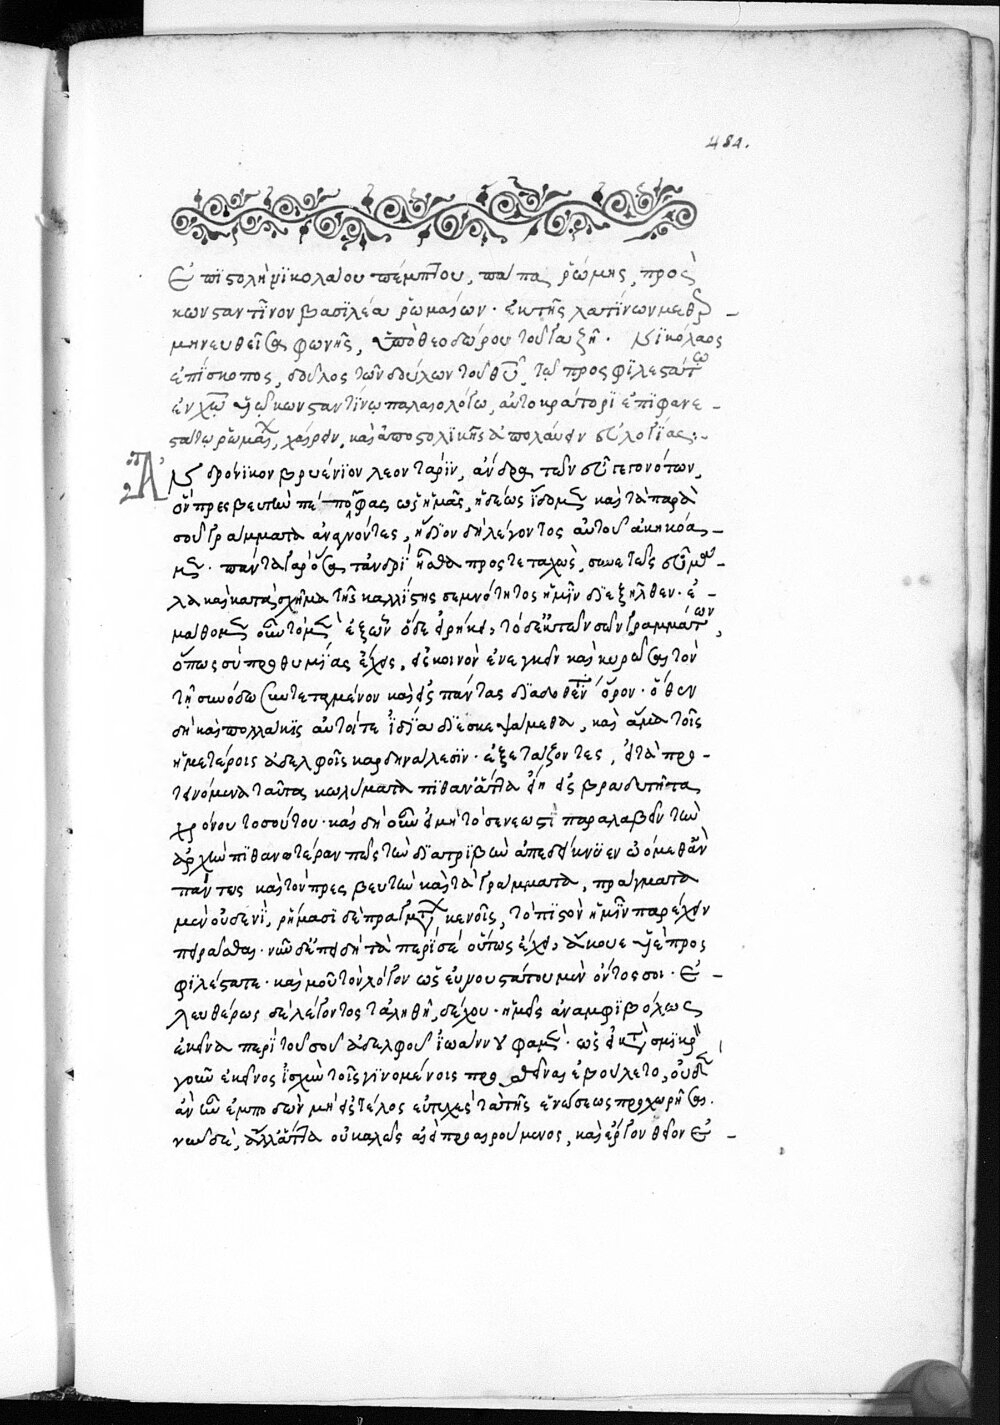 484.
Ἐπιστολὴ νικολάου πέμπτου, πάπα ῥώμης, πρὸς
κωνσταντῖνον βασιλέα ῥωμαίων. ἐκ τῆς λατίνων μεθερ-
μηνευθεῖσα φωνῆς, ὑπὸ θεοδώρου τοῦ γαζῆ. Νικόλαος
ἐπίσκοπος, δοῦλος τῶν δούλων τοῦ θυ, τῷ προσφιλεστάτῳ
ἐν χω υἱῷ κωνσταντίνῳ παλαιολόγῳ, αὐτοκράτορι ἐπιφανε-
στάτῳ ῥωμαίων, χαίρειν, καὶ ἀποστολικῆς ἀπολαύειν εὐλογίας:-
Ἀνδρόνικον βρυένιον λεοντάριν, ἄνδρα τῶν εὖ γεγονότων,
ὃν πρεσβευτὴν πέπομφας ὡς ἡμᾶς, ἡδέως εἴδομεν καὶ τὰ παρὰ
σοῦ γράμματα ἀναγνόντες, ἥδιον δὴ λέγοντος αὐτοῦ ἀκηκόα-
μεν. πάντα γὰρ ὅσα τἀνδρὶ ἦσθα προστεταχὼς, συνετῶς ἐμμε-
λα καὶ κατὰ σχῆμα τῆς καλλίστης σεμνότητος ἡμῖν διεξῆλθεν. ἐ-
μάθομεν οὖν τὸ μὲν ἐξ ὧν ὅδε εἰρήκει, τὸ δὲ ἐκ τῶν σῶν γραμμάτων,
ὅπως σὺ προθυμίας ἔχεις, εἰς κοινὸν ἐνεγκεῖν καὶ κυρῶσαι τὸν
τῇ συνόδῳ συντεταγμένον καὶ εἰς πάντας διαδοθέντα ὅρον. ὅθεν
δὴ καὶ πολλάκις αὐτοί τε ἰδίᾳ διεσκεψάμεθα, καὶ ἅμα τοῖς
ἡμετέροις ἀδελφοῖς καρδηνάλεσιν. ἐξετάζοντες, εἰ τὰ προ-
τεινόμενα ταῦτα κωλύματα πιθανὰ ἄττα εἴη εἰς βραδυτῆτα
χρόνου τοσούτου. καὶ δὴ οὖν εἰ μὴ τὸ ἔνεστι παραλαβεῖν τὴν
ἀρχὴν πιθανωτέραν πως τὴν διατριβὴν ἀπεδείκνυεν ᾠόμεθ' ἂν
πάντως καὶ τὸν πρεσβευτὴν καὶ τὰ γράμματα, πράγματα
μὲν οὐδενὶ, ῥήμασι δὲ πραγμάτων κενοῖς, τὸ πιστὸν ἡμῖν παρέχειν
πειρᾶσθαι. νῦν δὲ ἐπειδὴ τὰ περί σε οὕτως ἔχει, ἄκουε υἱὲ προσ
φιλέστατε. καὶ μοῦ τὸν λόγον ὡς εὐνουστάτου μὲν ὄντος σοι. ἐ-
λευθέρως δὲ λέγοντος τἀληθῆ, δέχου. ἡμεῖς ἀναμφιβόλως
ἐκεῖνα περὶ τοῦ σοῦ ἀδελφοῦ ἰωάννου φαμὲν. ὡς εἰ κατὰ σμικρὸν
γοῦν ἐκεῖνος ἰσχὺν τοῖς γινομένοις προσθεῖναι ἐβούλετο, οὐδὲν
ἂν ἦν ἐμποδὼν μὴ εἰς τέλος εὐτυχὲς τὰ τῆς ἑνώσεως προχωρῆσαι.
νῦν δὲ, ἀλλ' ἄττα οὐ καλῶς αἰεὶ προαιρούμενος, καὶ ἔργον θεῖον ἐ-